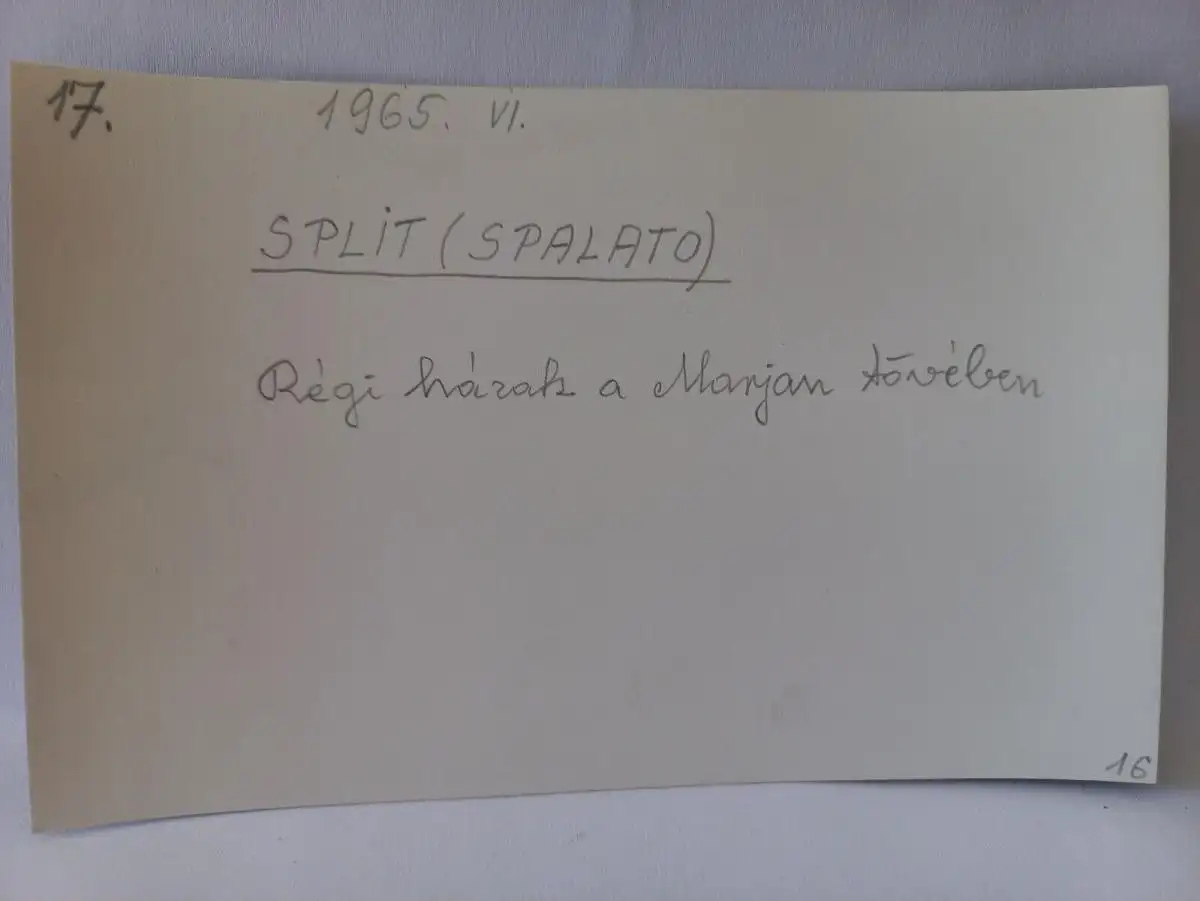 17.
1965. VI.
SPLIT (SPALATO)
Régi házak a Marjan tövében
16